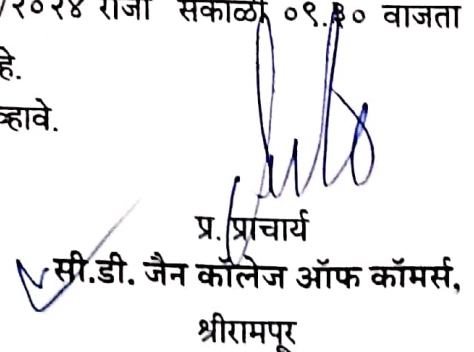 /२०२४ रोजी सकाळी ०९.३० वाजता
हे.
व्हावे.
प्र. प्राचार्य
सी.डी. जैन कॉलेज ऑफ कॉमर्स,
श्रीरामपूर